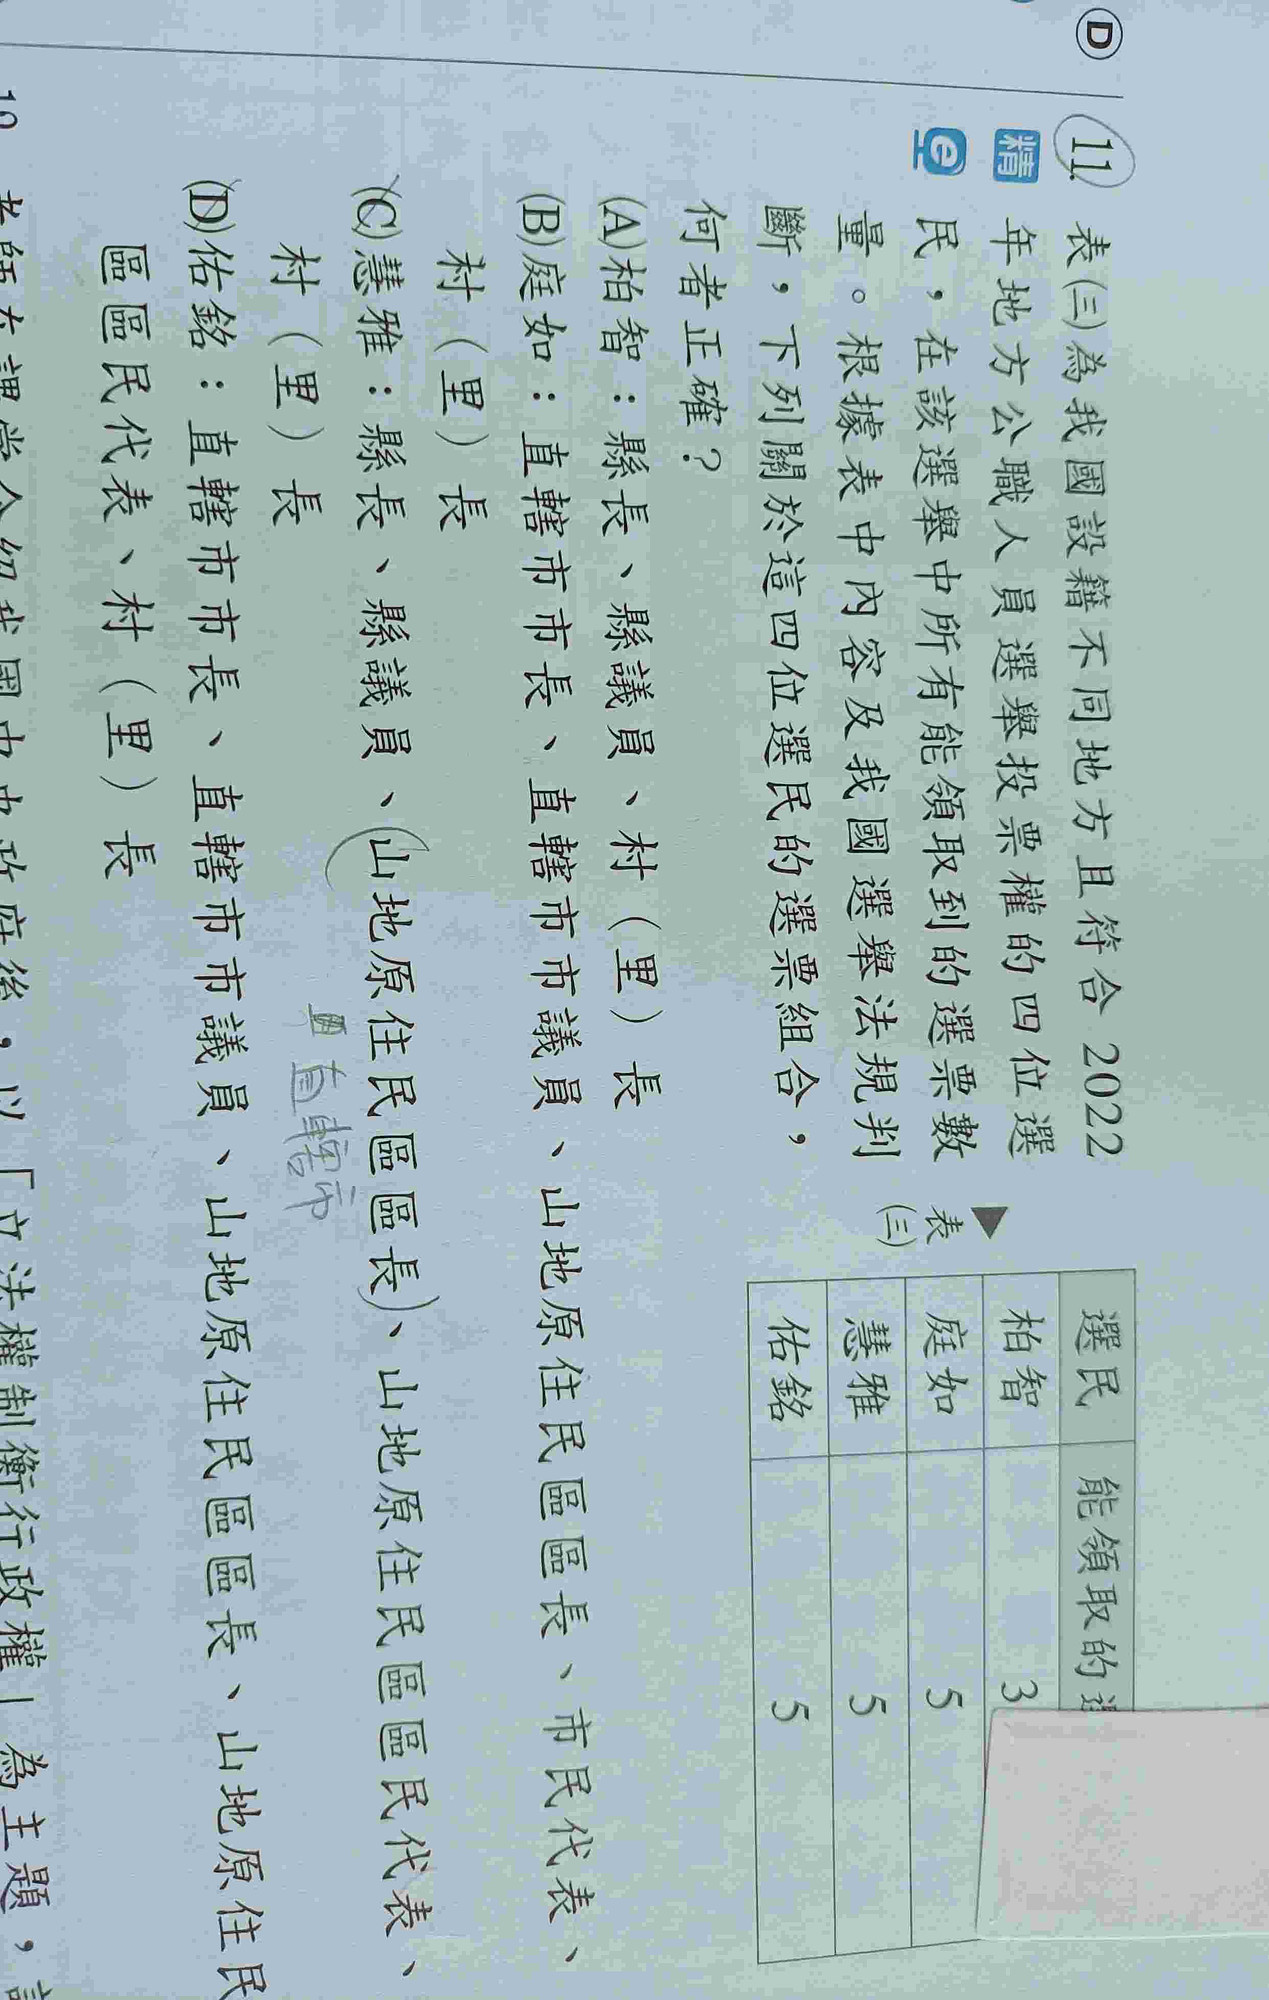 Ⓓ
11.
精
e
表㈢為我國設籍不同地方且符合2022
年地方公職人員選舉投票權的四位選
民，在該選舉中所有能領取到的選票數
量。根據表中內容及我國選舉法規判
斷，下列關於這四位選民的選票組合，
何者正確？
▲表㈢
選民 能領取的
柏智 3
庭如 5
慧雅 5
佑銘 5
(A)柏智：縣長、縣議員、村（里）長
(B)庭如：直轄市市長、直轄市市議員、山地原住民區區長、市民代表、
村（里）長
(C)慧雅：縣長、縣議員、(山地原住民區區長)、山地原住民區區民代表、
村（里）長
直轄市
(D)佑銘：直轄市市長、直轄市市議員、山地原住民區區長、山地原住民
區區民代表、村（里）長
老師在課堂介紹我國中央政府後，以「立法權制衡行政權」為主題，